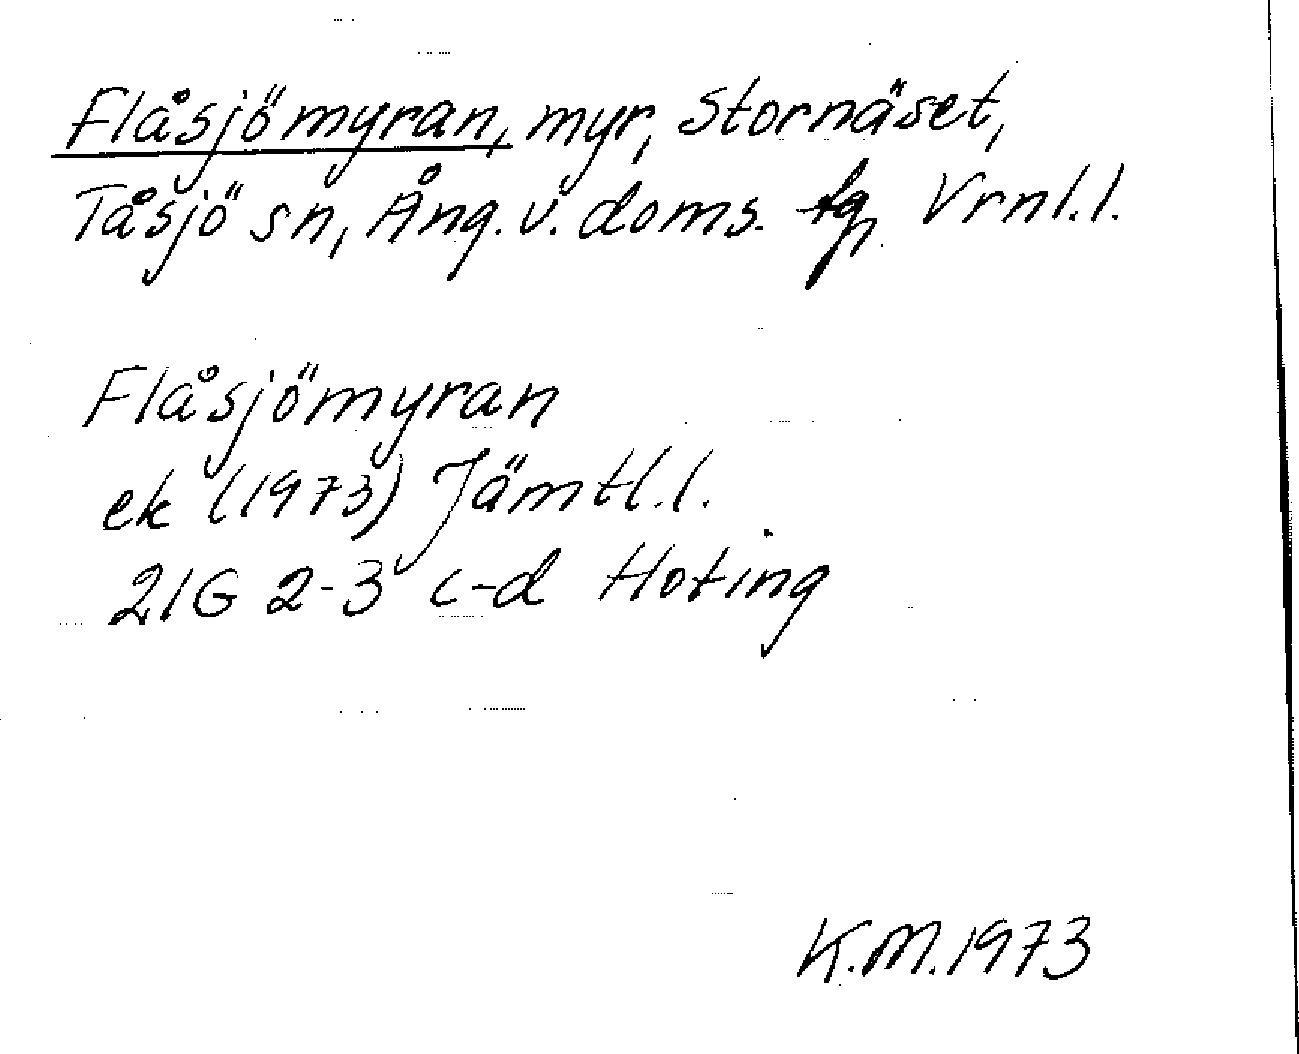 Flåsjömyran, myr, Stornäset,
Tåsjö sn, Ång. v. doms. fg, Vrnl.l.
Flåsjömyran
ek (1973) Jämtl.l.
21G 2-3 c-d Hoting
K.M.1973